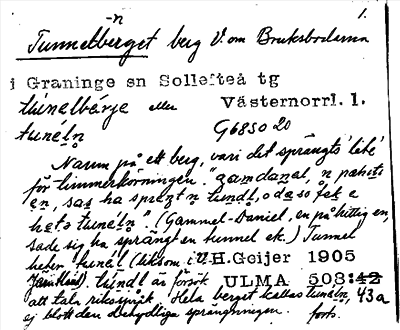 -n 1.
Tunnelberget berg V. om Bruksbodarna
i Graninge sn Sollefteå tg
tùnelbárje eller Västernorrl. l.
tunéln G6850 20
Namn på ett berg, vari det sprängts lite'
för timmerkörningen. "gamdanəl, n påhets
en, sas ha språŋt n tundl, o da so fæk e
heta tunéln" (Gammel-Daniel, en påhittig en,
sade sig ha sprängt en tunnel etc.) Tunnel
heter tunél (liksom i V. H.Geijer 1905
Jämtland), tùndl är försök ULMA 508:42 43a
att tala riksspråk. Hela berget kallas tunéln,
ej blott den obetydliga sprängningen. forts.